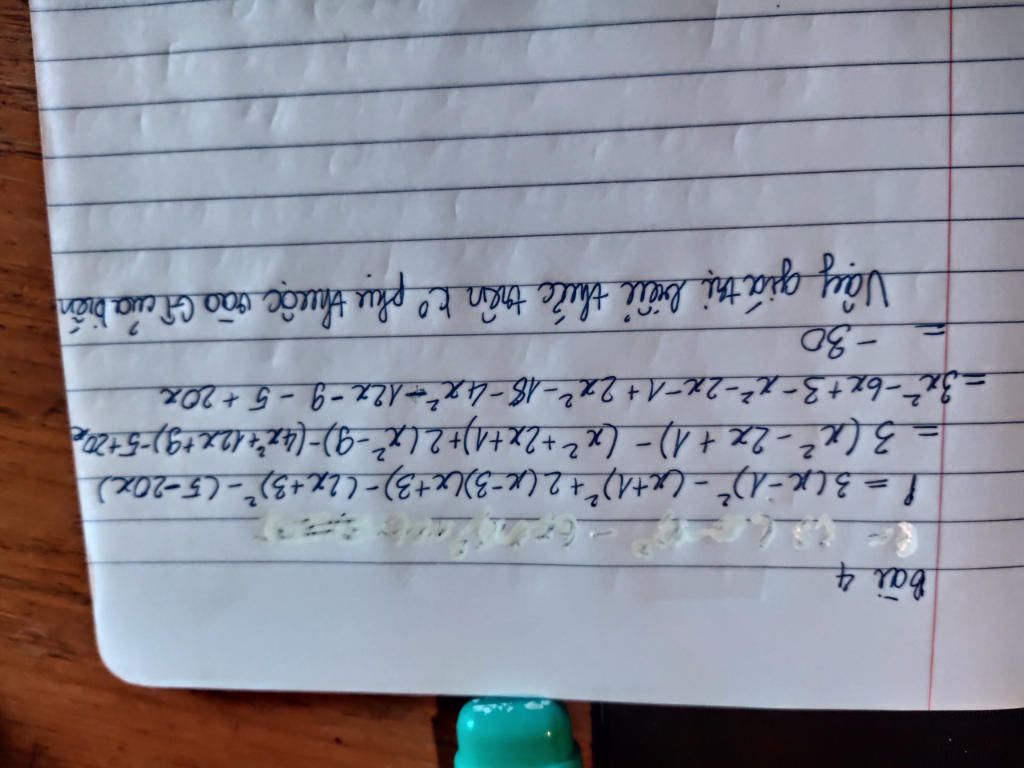 bài 4
P = 3(x-1)² - (x+1)² + 2(x-3)(x+3) - (2x+3)² - (5-20x)
= 3(x² - 2x + 1) - (x² + 2x + 1) + 2(x² - 9) - (4x² + 12x + 9) - 5 + 20x
= 3x² - 6x + 3 - x² - 2x - 1 + 2x² - 18 - 4x² - 12x - 9 - 5 + 20x
= -30
Vậy giá trị biểu thức trên k° phụ thuộc vào GT của biến